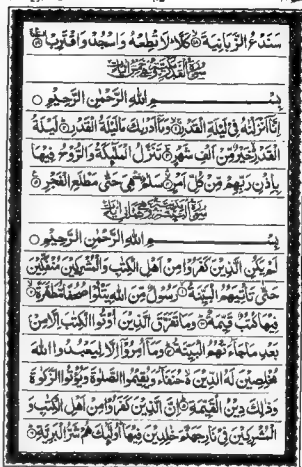 سَنَدْعُ الزَّبَانِيَةَ ۝ كَلَّا لَا تُطِعْهُ وَاسْجُدْ وَاقْتَرِبْ ۝
سورة القدر
بِسْمِ اللهِ الرَّحْمٰنِ الرَّحِيْمِ ۝
اِنَّا اَنْزَلْنٰهُ فِيْ لَيْلَةِ الْقَدْرِ ۝ وَمَا اَدْرٰىكَ مَا لَيْلَةُ الْقَدْرِ ۝ لَيْلَةُ
الْقَدْرِ خَيْرٌ مِّنْ اَلْفِ شَهْرٍ ۝ تَنَزَّلُ الْمَلٰٓئِكَةُ وَالرُّوْحُ فِيْهَا
بِاِذْنِ رَبِّهِمْ مِّنْ كُلِّ اَمْرٍ ۝ سَلٰمٌ هِيَ حَتّٰى مَطْلَعِ الْفَجْرِ ۝
سورة البينة
بِسْمِ اللهِ الرَّحْمٰنِ الرَّحِيْمِ ۝
لَمْ يَكُنِ الَّذِيْنَ كَفَرُوْا مِنْ اَهْلِ الْكِتٰبِ وَالْمُشْرِكِيْنَ مُنْفَكِّيْنَ
حَتّٰى تَاْتِيَهُمُ الْبَيِّنَةُ ۝ رَسُوْلٌ مِّنَ اللهِ يَتْلُوْا صُحُفًا مُّطَهَّرَةً ۝
فِيْهَا كُتُبٌ قَيِّمَةٌ ۝ وَمَا تَفَرَّقَ الَّذِيْنَ اُوْتُوا الْكِتٰبَ اِلَّا مِنْ
بَعْدِ مَا جَآءَتْهُمُ الْبَيِّنَةُ ۝ وَمَآ اُمِرُوْٓا اِلَّا لِيَعْبُدُوا اللهَ
مُخْلِصِيْنَ لَهُ الدِّيْنَ ۙ حُنَفَآءَ وَيُقِيْمُوا الصَّلٰوةَ وَيُؤْتُوا الزَّكٰوةَ
وَذٰلِكَ دِيْنُ الْقَيِّمَةِ ۝ اِنَّ الَّذِيْنَ كَفَرُوْا مِنْ اَهْلِ الْكِتٰبِ وَ
الْمُشْرِكِيْنَ فِيْ نَارِ جَهَنَّمَ خٰلِدِيْنَ فِيْهَا اُولٰٓئِكَ هُمْ شَرُّ الْبَرِيَّةِ ۝